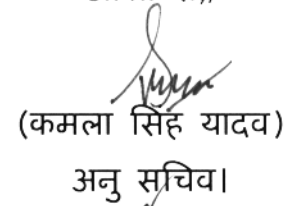 (कमला सिंह यादव)
अनु सचिव।